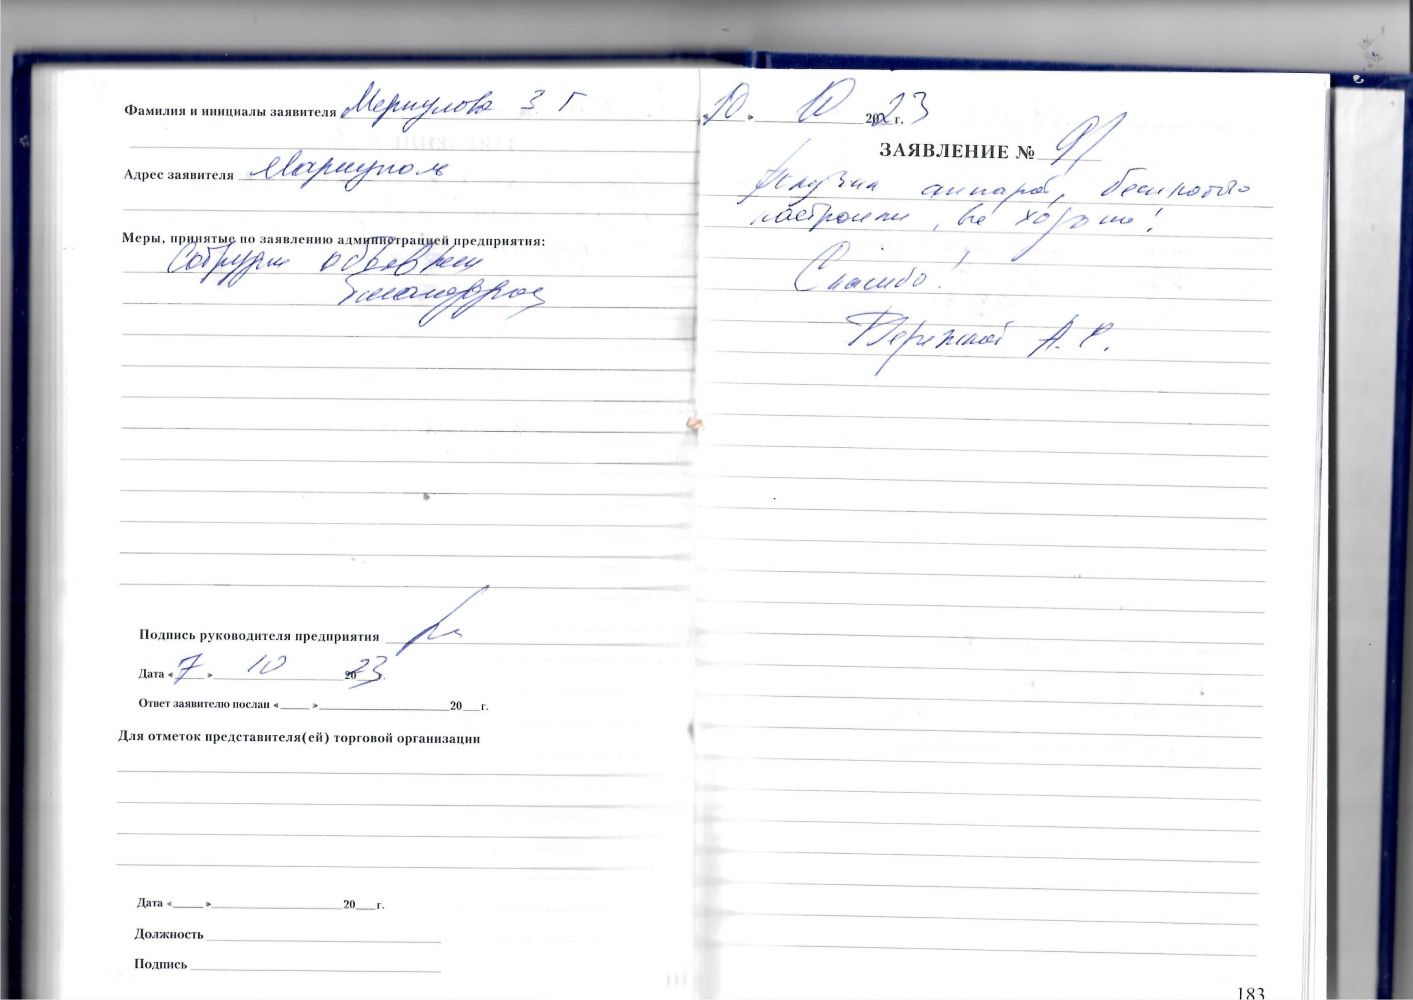 Фамилия и инициалы заявителя Меркулова З Г
Адрес заявителя Мариуполь
Меры, принятые по заявлению администрацией предприятия:
Сотрудн объявлен
Подпись руководителя предприятия
Дата « 7 » 10 2023 г.
Ответ заявителю послан « » 20 г.
Для отметок представителя(ей) торговой организации
Дата « » 20 г.
Должность
Подпись
10 » 10 2023 г.
ЗАЯВЛЕНИЕ № 91
Получил аппарат, бесплатно
настроили, все хорошо!
Спасибо!
А. С.
183